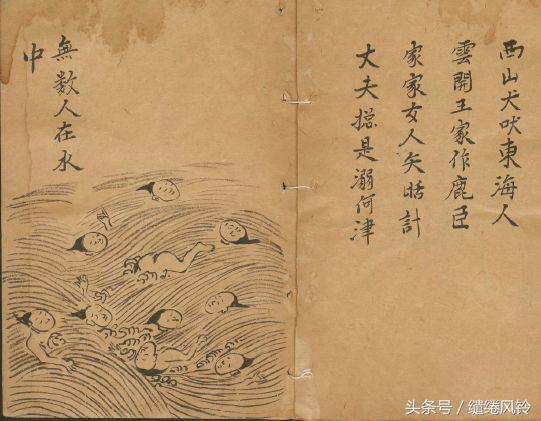 西山犬吠東海人
雲開王家作鹿臣
家家女人失活計
丈夫揔是溺何津
無数人在水
中
头条号/缱绻风铃